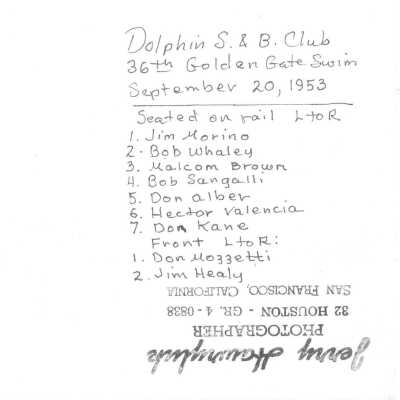 Dolphin S. & B. Club
36th Golden Gate Swim
September 20, 1953
Seated on rail L to R
1. Jim Morino
2. Bob Whaley
3. Malcom Brown
4. Bob Sangalli
5. Don alber
6. Hector Valencia
7. Don Kane
Front L to R:
1. Don Mozzetti
2. Jim Healy
Jerry
PHOTOGRAPHER
32 HOUSTON - GR. 4-0838
SAN FRANCISCO, CALIFORNIA